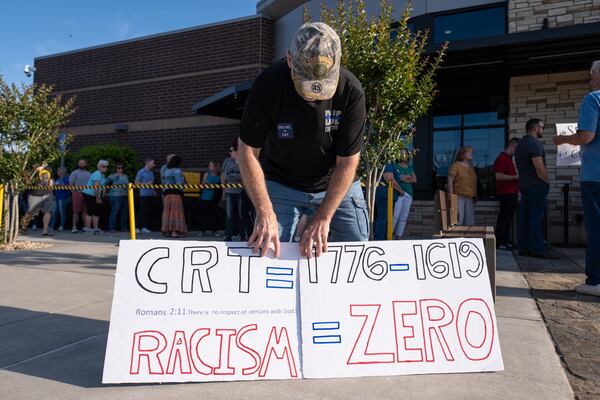 CRT = 1776-1619
Romans 2:11 There is no respect of persons with God.
RACISM = ZERO
45